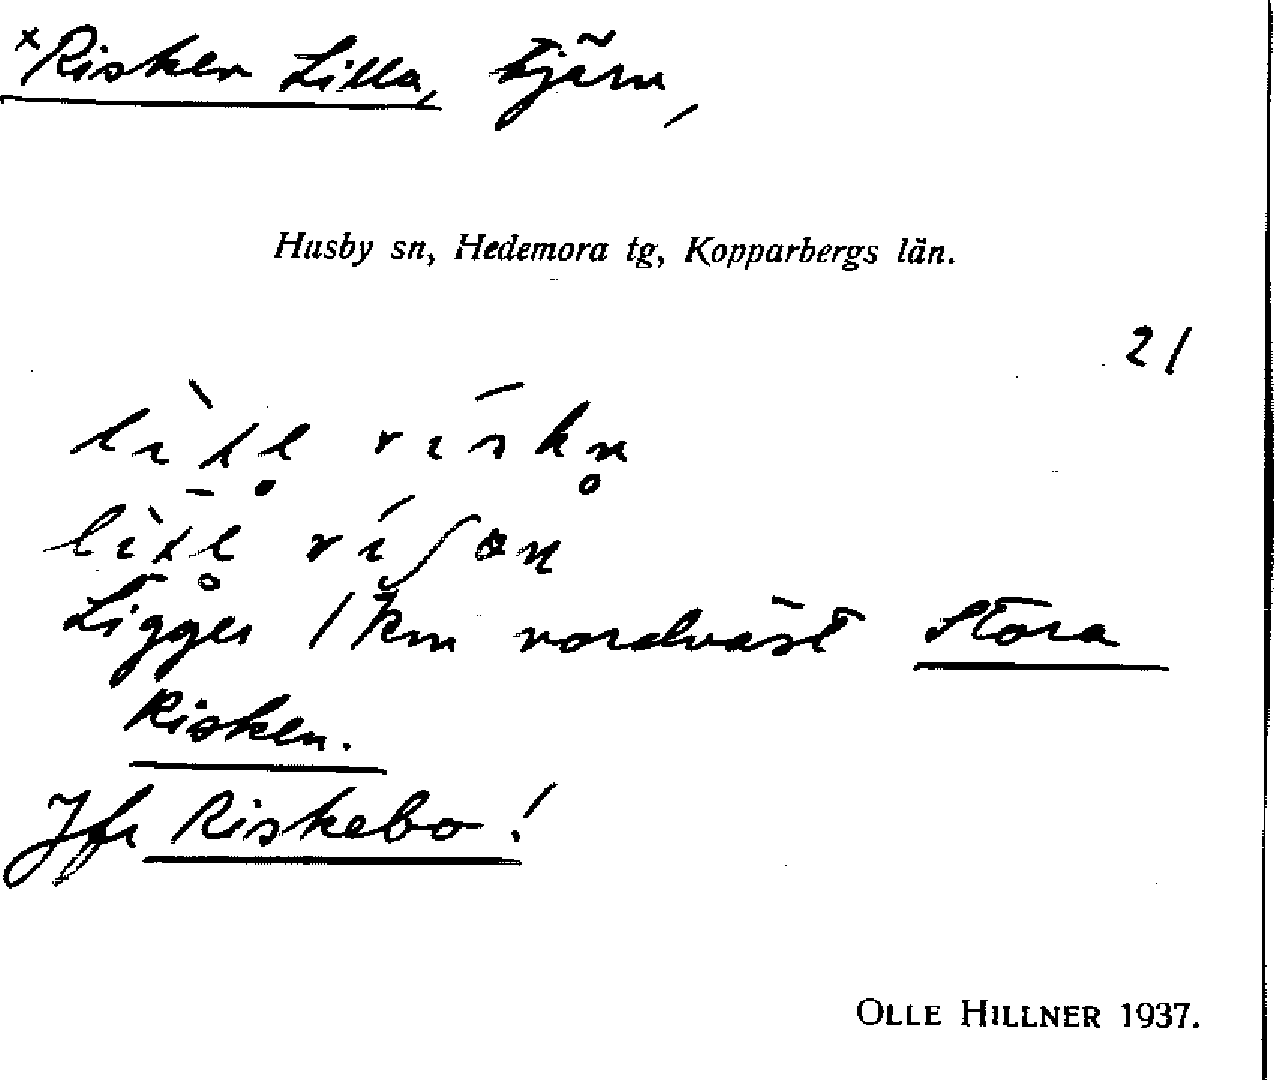 ×Risken Lilla, tjärn,
Husby sn, Hedemora tg, Kopparbergs län.
21
Ligger 1 km nordväst Stora
Risken.
Jfr Riskebo!
OLLE HILLNER 1937.